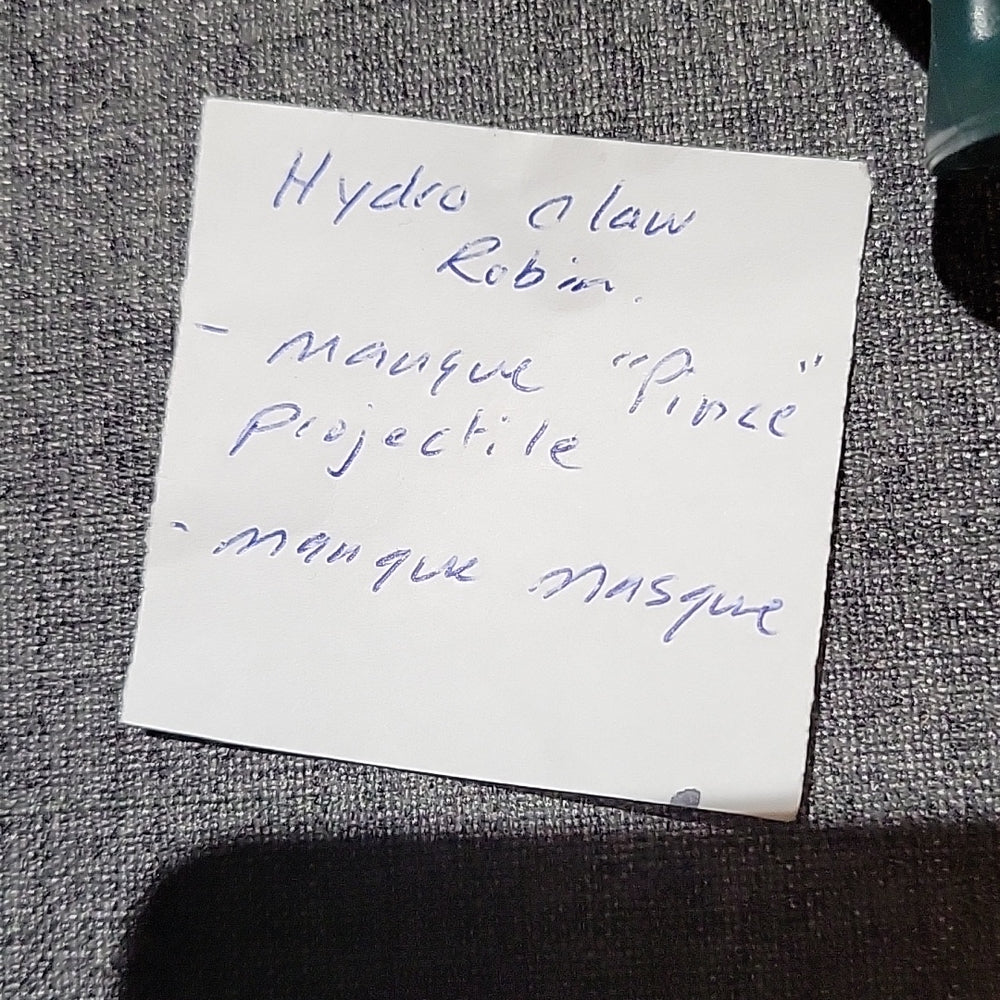 Hydro claw
Robin.
- manque "Pince"
Projectile
- manque masque